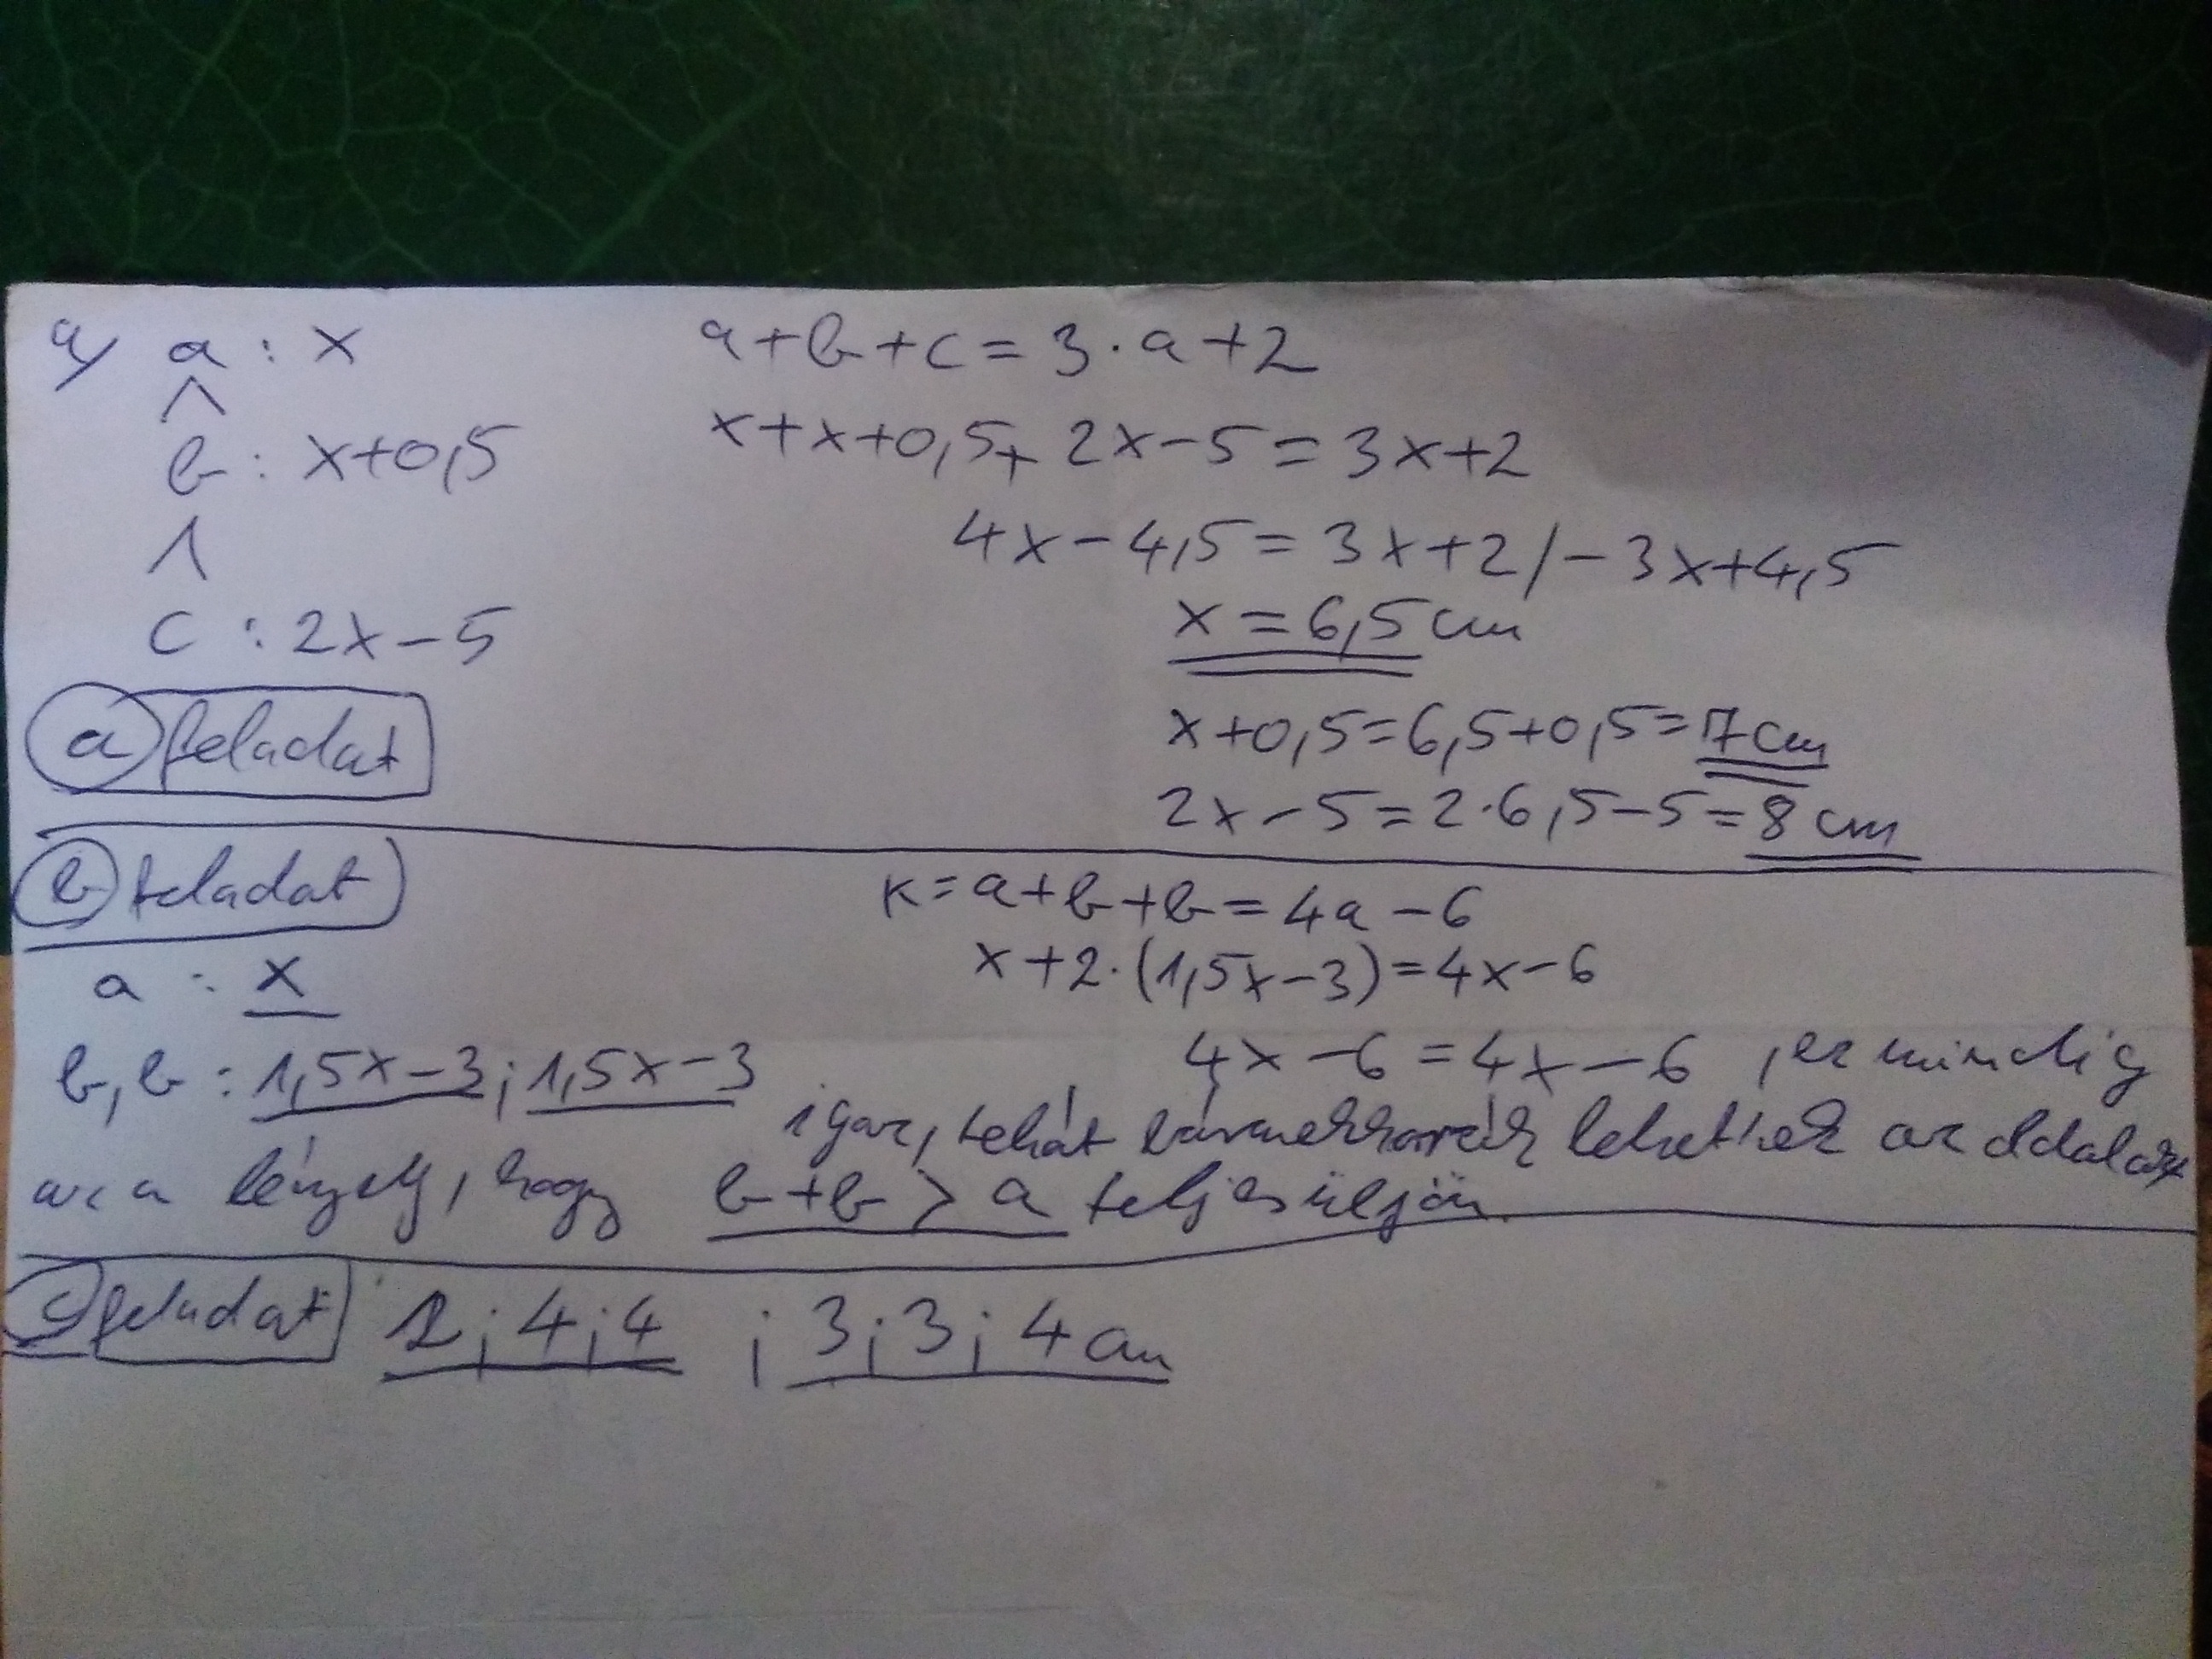 a/ a : x
^
b : x+0,5
^
c : 2x-5
a feladat
a+b+c=3·a+2
x+x+0,5+2x-5=3x+2
4x-4,5=3x+2/-3x+4,5
x=6,5cm
x+0,5=6,5+0,5=7cm
2x-5=2·6,5-5=8cm
b feladat
a : x
b,b : 1,5x-3;1,5x-3
K=a+b+b=4a-6
x+2·(1,5x-3)=4x-6
4x-6=4x-6 , ez mindig
igaz, tehát bármekkorák lehetnek az oldalak
az a lényeg, hogy b+b>a teljesüljön.
c feladat 2;4;4 ; 3;3;4cm